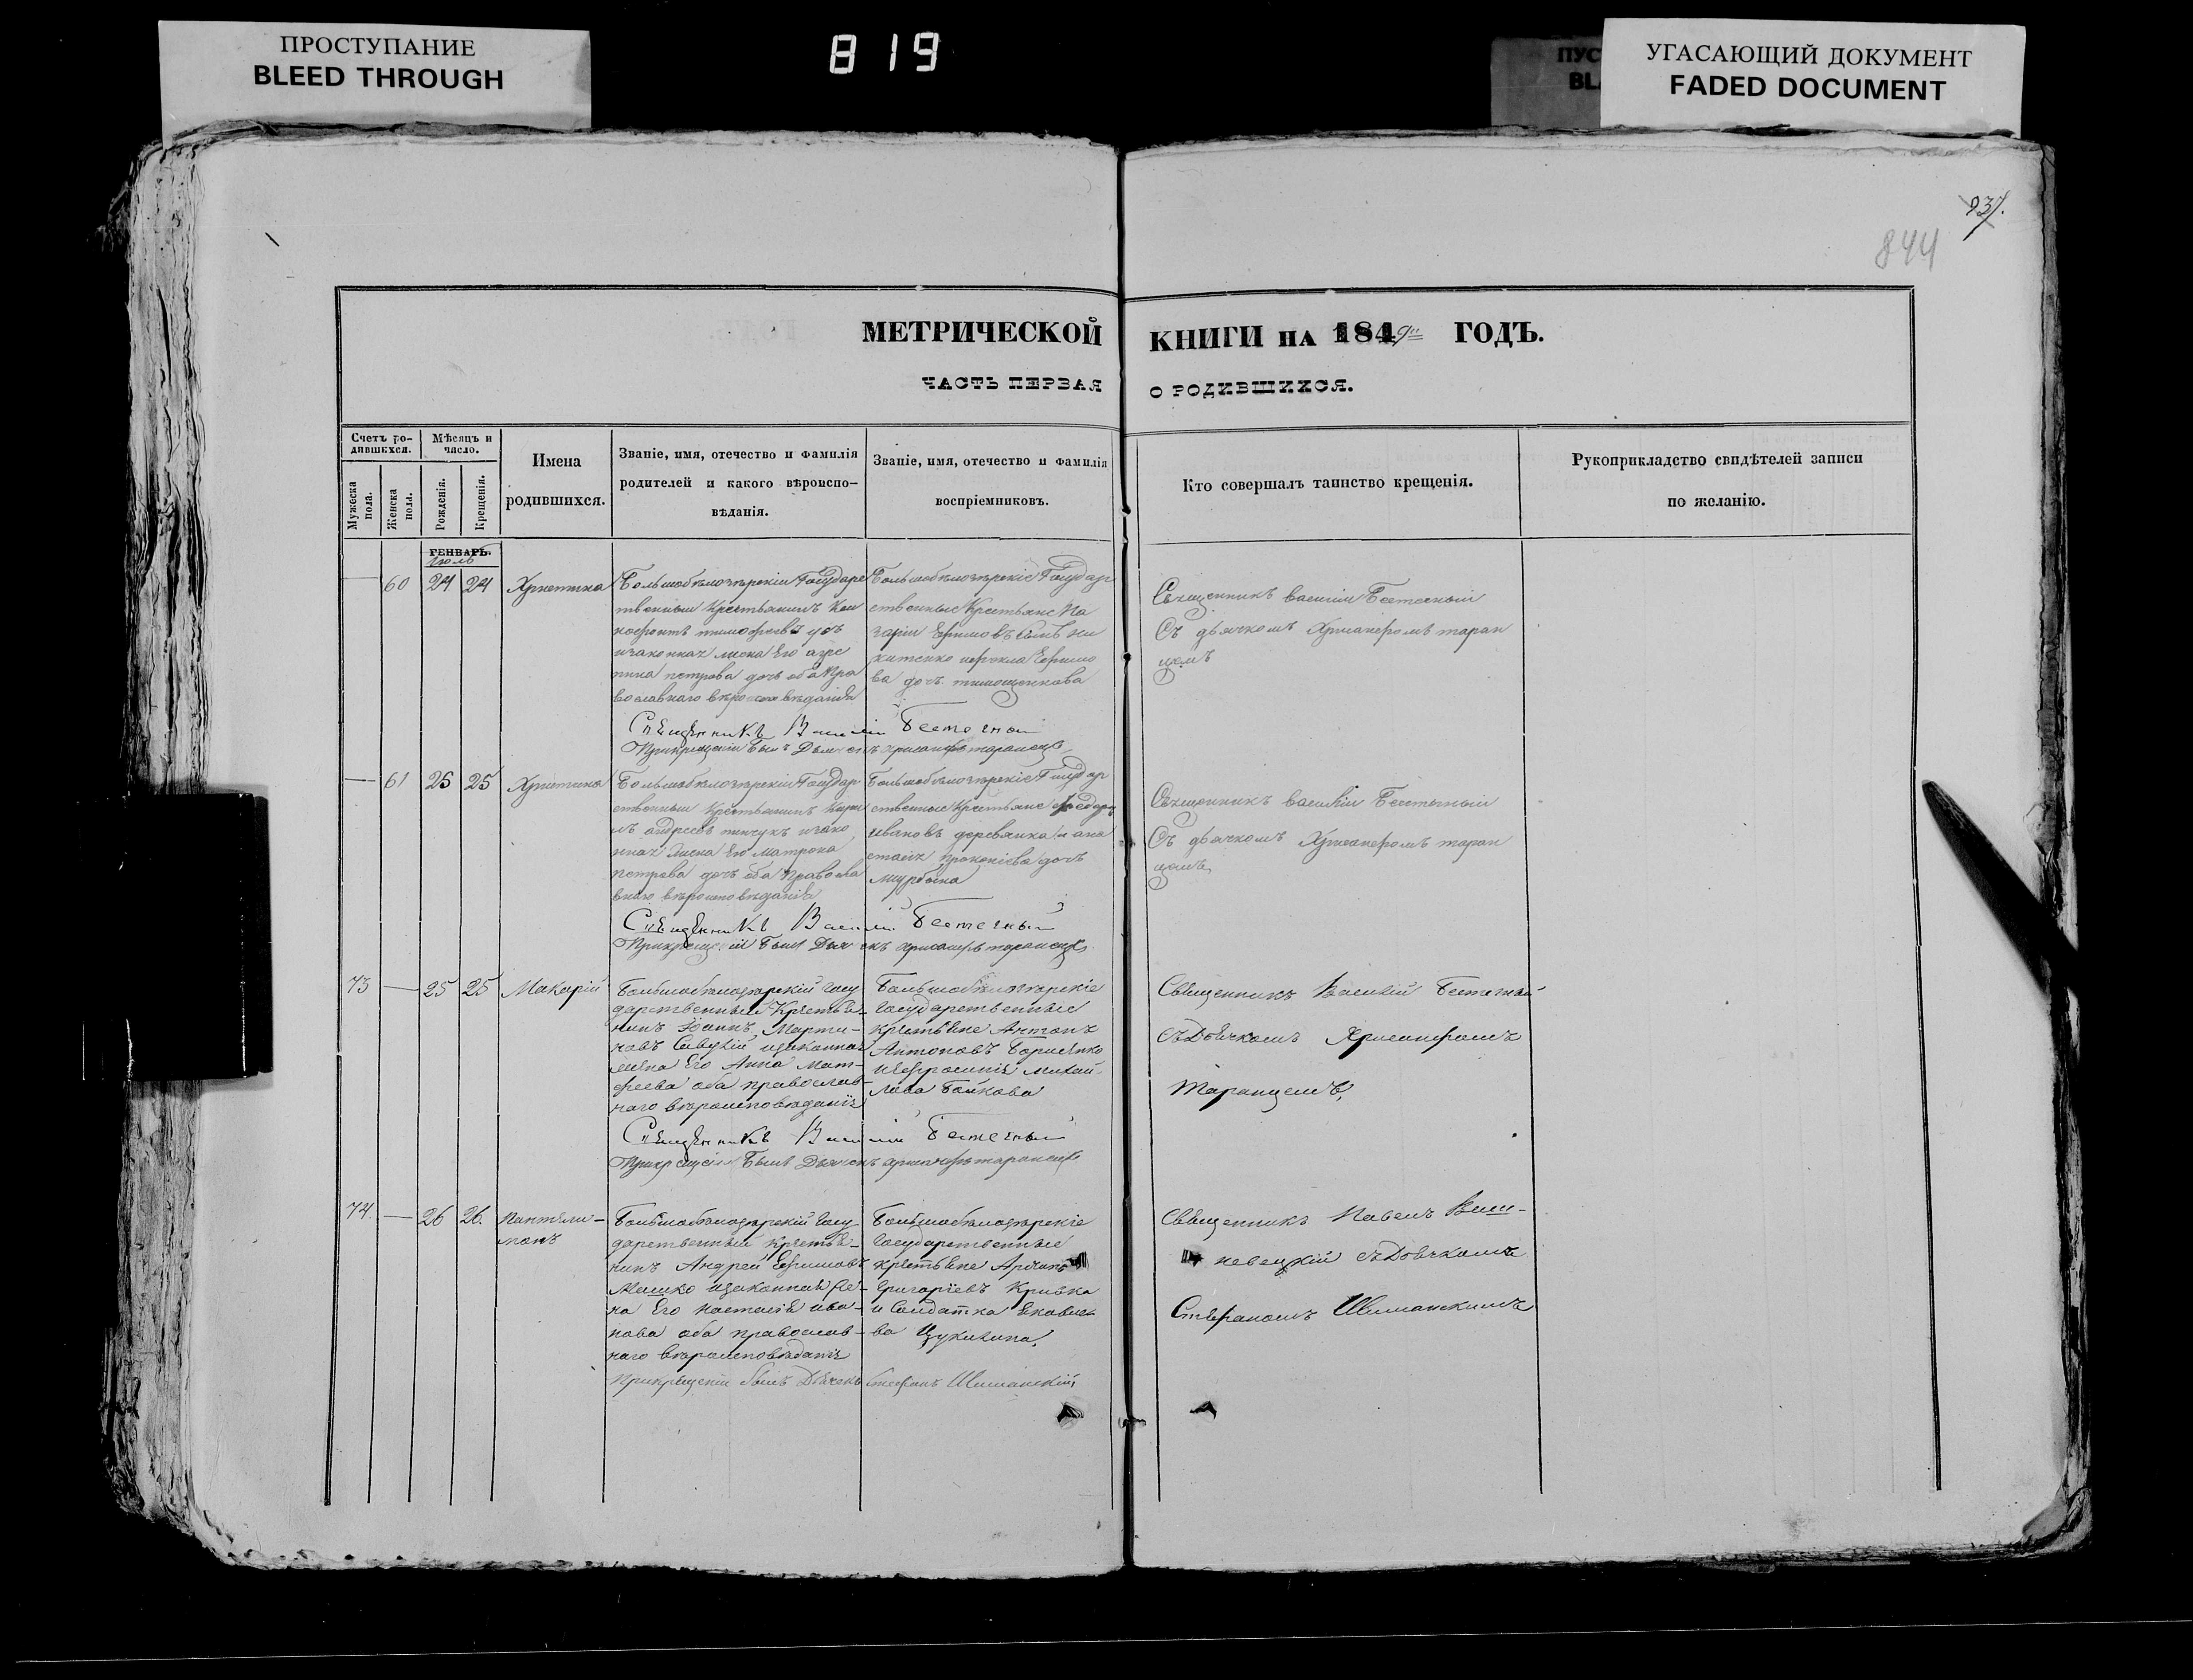 ПРОСТУПАНИЕ
BLEED THROUGH
819
ПУС
BL
УГАСАЮЩИЙ ДОКУМЕНТ
FADED DOCUMENT
844
МЕТРИЧЕСКОЙ КНИГИ НА 1849 ГОДЪ.
ЧАСТЬ ПЕРВАЯ О РОДИВШИХСЯ.
Счетъ родившихся.
Мужеска пола.
Женска пола.
Мѣсяцъ и число.
Рожденія.
Крещенія.
Имена
родившихся.
Званіе, имя, отечество и фамилія
родителей и какого вѣроиспо-
вѣданія.
Званіе, имя, отечество и фамилія
воспріемниковъ.
Кто совершалъ таинство крещенія.
Рукоприкладство свидѣтелей записи
по желанію.
ГЕНВАРЬ.
Іюль
60 24 24 Христина
Большобѣлозѣрскій Государ
твенный Крестьянинъ
жена Его
петрова дочь оба Пра
вославнаго вѣроисповѣданія
Большобѣлозѣрскіе Государ
ственные Крестьяне
Ефимовъ
Ефимо
ва дочь тимощенкова
Священникъ василій Бестечный
Съ дьячкомъ Хрисанфомъ таран
цемъ
Священникъ Василій Бестечный
При крещеніи былъ Дьячекъ хрисанфъ таранецъ
61 25 25 Христина
Большобѣлозѣрскій Государ
ственный Крестьянинъ
андреевъ пинчукъ изако
нная жена Его Матрона
петрова дочь оба Правосла
внаго вѣроисповѣданія
Большобѣлозѣрскіе Государ
ственные Крестьяне Федоръ
ивановъ деревянка и ана
стасія прокопіева дочь
Священникъ василій Бестечный
Съ дьячкомъ Хрисанфомъ таран
цемъ
Священникъ Василій Бестечный
При крещеніи былъ Дьячекъ хрисанфъ таранецъ
73 25 25 Макарій
Большобѣлозѣрскій Госу
дарственный Крестья-
нинъ Іоаннъ Марти-
новъ Савецкій изаконная
жена Его Анна Мат-
феева оба православ-
наго вѣроисповѣданія
Большобѣлозѣрскіе
Государственные
крестьяне Антонъ
Антоновъ Борисенко
иЕфросинія Михай-
лова Бойкова
Священникъ Василій Бестечный
съ Дьячкомъ Хрисанфомъ
Таранцемъ,
Священникъ Василій Бестечный
При крещеніи былъ Дьячекъ хрисанфъ таранецъ
74. 26 26. Пантели-
монъ
Большобѣлозѣрскій Госу
дарственный крестья-
нинъ Андрей Ефимовъ
Машко изаконная же-
на Его Настасія ива-
нова оба православ-
наго вѣроисповѣданія
Большобѣлозѣрскіе
Государственные
крестьяне
Григоріевъ Кривка
и Солдатка Яковле
ва Цукилина,
Священникъ Павелъ Виш-
невецкій съ Дьячкомъ
Стефаномъ Шиманскимъ
При крещеніи былъ Дьячекъ Стефанъ Шиманскій